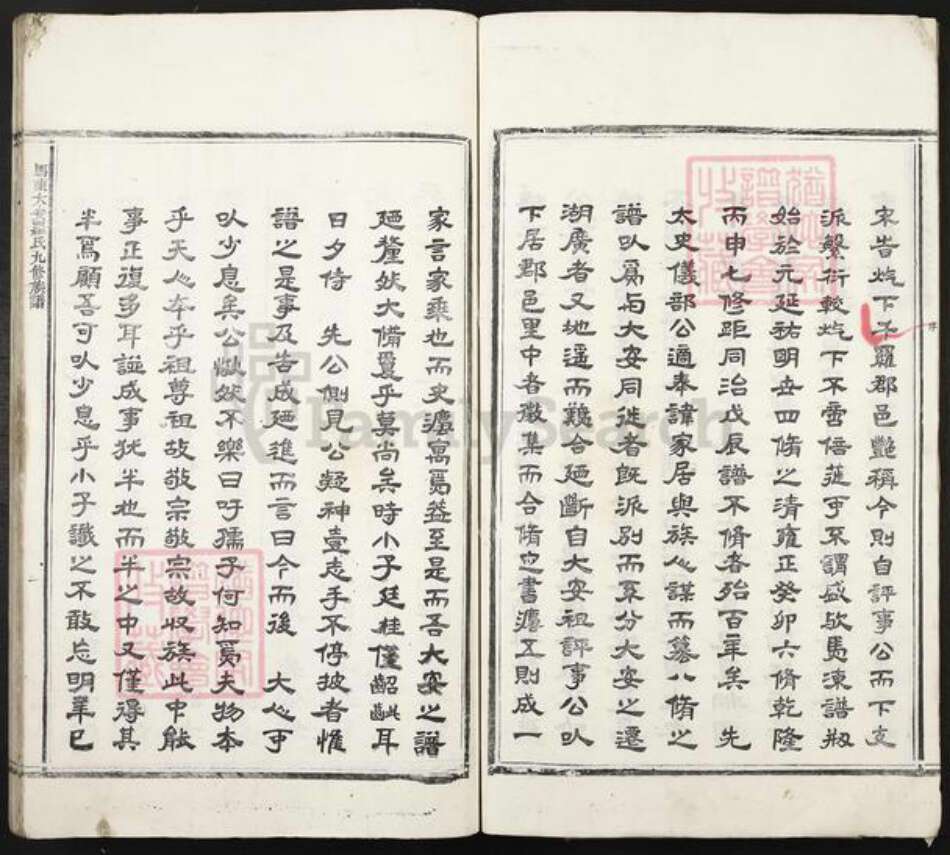 宋告炕下予羅郡邑艷稱今則自評事公而下支
派繁衍較炕下不啻倍蓰可不謂盛歟馬湅譜剏
始於元延祐明世四脩之清雍正癸卯六脩乾隆
丙申七修距同治戊辰譜不脩者殆百年矣 先
太史儀部公適奉諱家居與族人謀而纂八脩之
譜以爲与大安同徙者旣派别而系分大安之遷
湖廣者又地遥而難合廼斷自大安祖評事公以
下居郡邑里中者徵集而合脩之書瀘五則成一
家言家乘也而史瀘寓焉葢至是而吾大安之譜
廼釐然大備蔓乎莫尚矣時小子廷桂僅齠齔耳
日夕侍 先公側見公凝神壹志手不停披者惟
譜之是事及告成廼進而言曰今而後 大人可
以少息矣公愀然不樂曰吁孺子何知焉夫物本
乎天人本乎祖尊祖故敬宗敬宗故收族此中骴
事正復多耳諡成事犹半也而半之中又僅得其
半焉顧吾可以少息乎小子識之不敢忘明年已
大安羅氏九修族譜